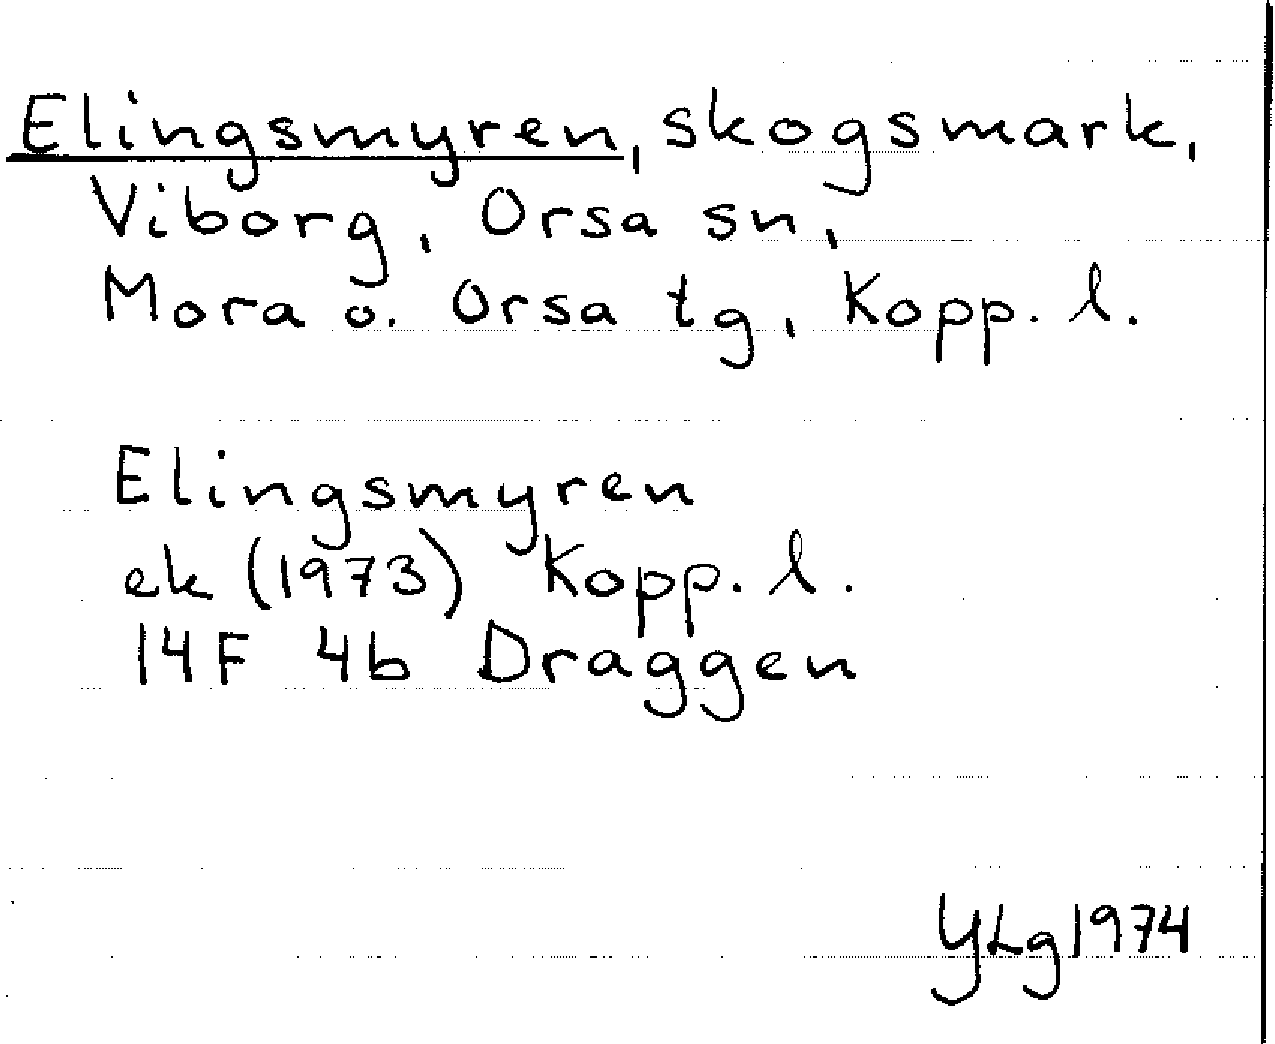 Elingsmyren, skogsmark,
Viborg, Orsa sn,
Mora o. Orsa tg, Kopp. l.
Elingsmyren
ek (1973) Kopp. l.
14F 4b Draggen
YLg 1974